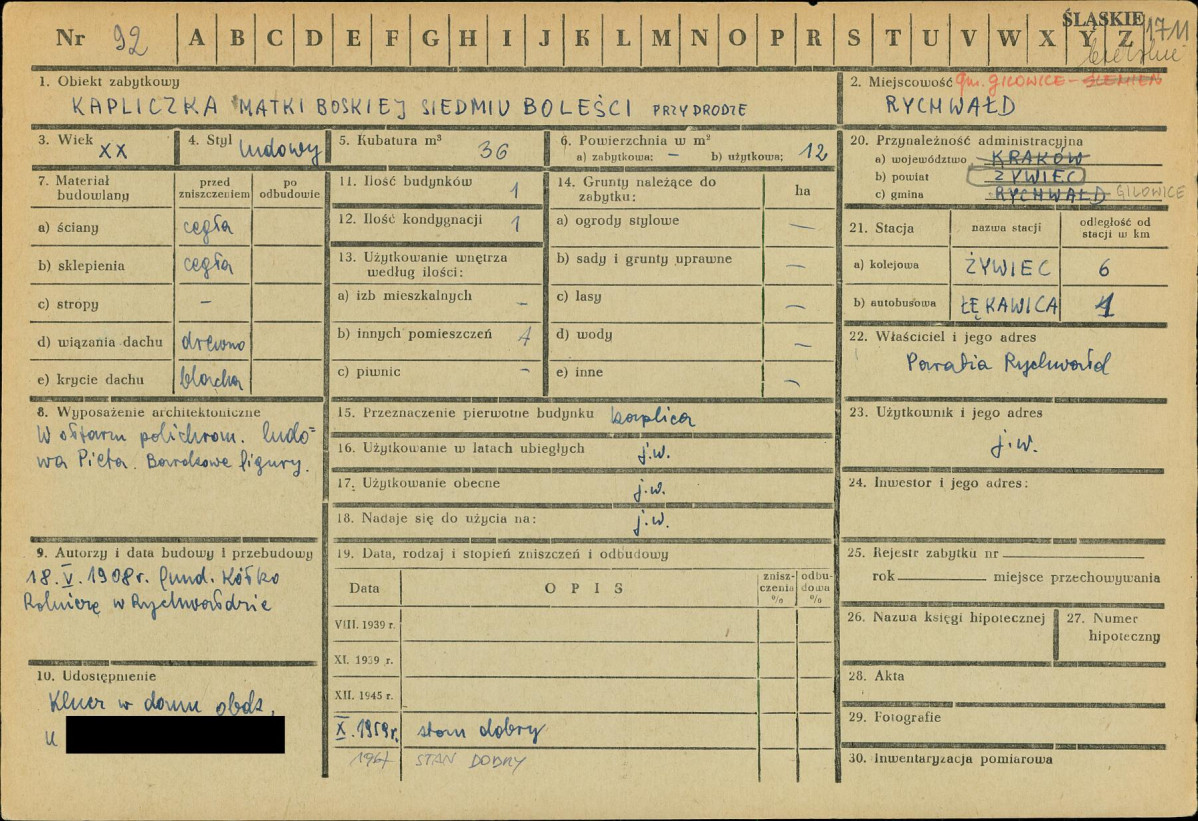 Nr 92 A B C D E F G H I J K L M N O P R S T U V W X Y Z
ŚLĄSKIE 1711
1. Obiekt zabytkowy
KAPLICZKA MATKI BOSKIEJ SIEDMIU BOLEŚCI PRZY DRODZE
2. Miejscowość gm. GILOWICE - ŚLEMIEŃ
RYCHWAŁD
3. Wiek XX
4. Styl ludowy
5. Kubatura m³ 36
6. Powierzchnia w m²
a) zabytkowa: – b) użytkowa: 12
7. Materiał budowlany
przed zniszczeniem
po odbudowie
a) ściany cegła
b) sklepienia cegła
c) stropy –
d) wiązania dachu drewno
e) krycie dachu blacha
8. Wyposażenie architektoniczne
W ołtarzu polichrom. ludo=
wa Pieta. Barokowe figury.
9. Autorzy i data budowy i przebudowy
18.V.1908r. fund. Kółko
Rolnicze w Rychwałdzie
10. Udostępnienie
Klucz w domu obok,
u
11. Ilość budynków 1
12. Ilość kondygnacji 1
13. Użytkowanie wnętrza
według ilości:
a) izb mieszkalnych –
b) innych pomieszczeń 1
c) piwnic –
14. Grunty należące do
zabytku: ha
a) ogrody stylowe –
b) sady i grunty uprawne –
c) lasy –
d) wody –
e) inne –
15. Przeznaczenie pierwotne budynku kaplica
16. Użytkowanie w latach ubiegłych j.w.
17. Użytkowanie obecne j.w.
18. Nadaje się do użycia na: j.w.
19. Data, rodzaj i stopień zniszczeń i odbudowy
Data OPIS znisz-czenia % odbu-dowa %
VIII. 1939 r.
XI. 1939 r.
XII. 1945 r.
X.1959r. stan dobry
1967 STAN DOBRY
20. Przynależność administracyjna
a) województwo KRAKÓW
b) powiat ŻYWIEC
c) gmina RYCHWAŁD GILOWICE
21. Stacja nazwa stacji odległość od stacji w km
a) kolejowa ŻYWIEC 6
b) autobusowa ŁĘKAWICA 1
22. Właściciel i jego adres
Parafia Rychwałd
23. Użytkownik i jego adres
j.w.
24. Inwestor i jego adres:
25. Rejestr zabytku nr
rok miejsce przechowywania
26. Nazwa księgi hipotecznej
27. Numer hipoteczny
28. Akta
29. Fotografie
30. Inwentaryzacja pomiarowa